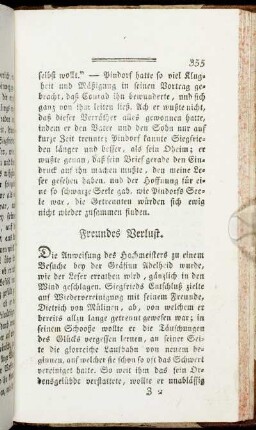 355
selbst wollt." — Pindorf hatte so viel Klug-
heit und Mäßigung in seinen Vortrag ge-
bracht, daß Conrad ihn bewunderte, und sich
ganz von ihm leiten ließ. Ach er wußte nicht,
daß dieser Verräther alles gewonnen hatte,
indem er den Vater und den Sohn nur auf
kurze Zeit trennte; Pindorf kannte Siegfrie-
den länger und besser, als sein Oheim; er
wußte genau, daß sein Brief gerade den Ein-
druck auf ihn machen mußte, den meine Le-
ser gesehen haben, und der Hoffnung für ei-
ne so schwarze Seele gab, wie Pindorfs See-
le war, die Getrennten würden sich ewig
nicht wieder zusammen finden.
Freundes Verlust.
Die Anweisung des Hochmeisters zu einem
Besuche bey der Gräfinn Adelheid wurde,
wie der Leser errathen wird, gänzlich in den
Wind geschlagen. Siegfrieds Entschluß zielte
auf Wiedervereinigung mit seinem Freunde,
Dietrich von Mülinen, ab, von welchem er
bereits allzu lange getrennt gewesen war; in
seinem Schooße wollte er die Täuschungen
des Glücks vergessen lernen, an seiner Sei-
te die glorreiche Laufbahn von neuem be-
ginnen, auf welcher sie schon so oft das Schwert
vereiniget hatte. So weit ihm das sein Or-
densgelübde verstattete, wollte er unablässig
Z 2